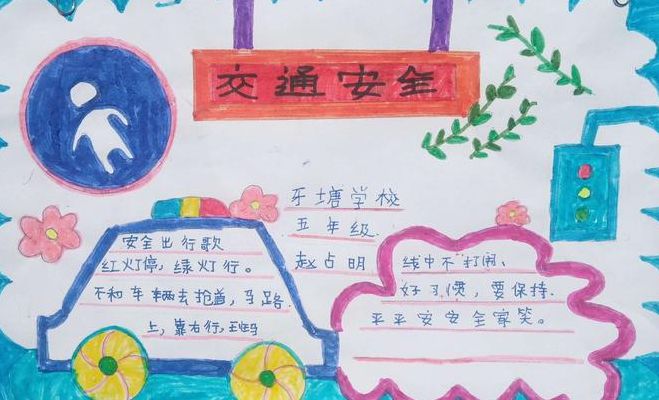 交通安全
牙塘学校
五年级
赵占明
安全出行歌
红灯停，绿灯行。
不和车辆去抢道，马路
上，靠右行，
线中不打闹、
好习惯，要保持
平平安安全家笑。